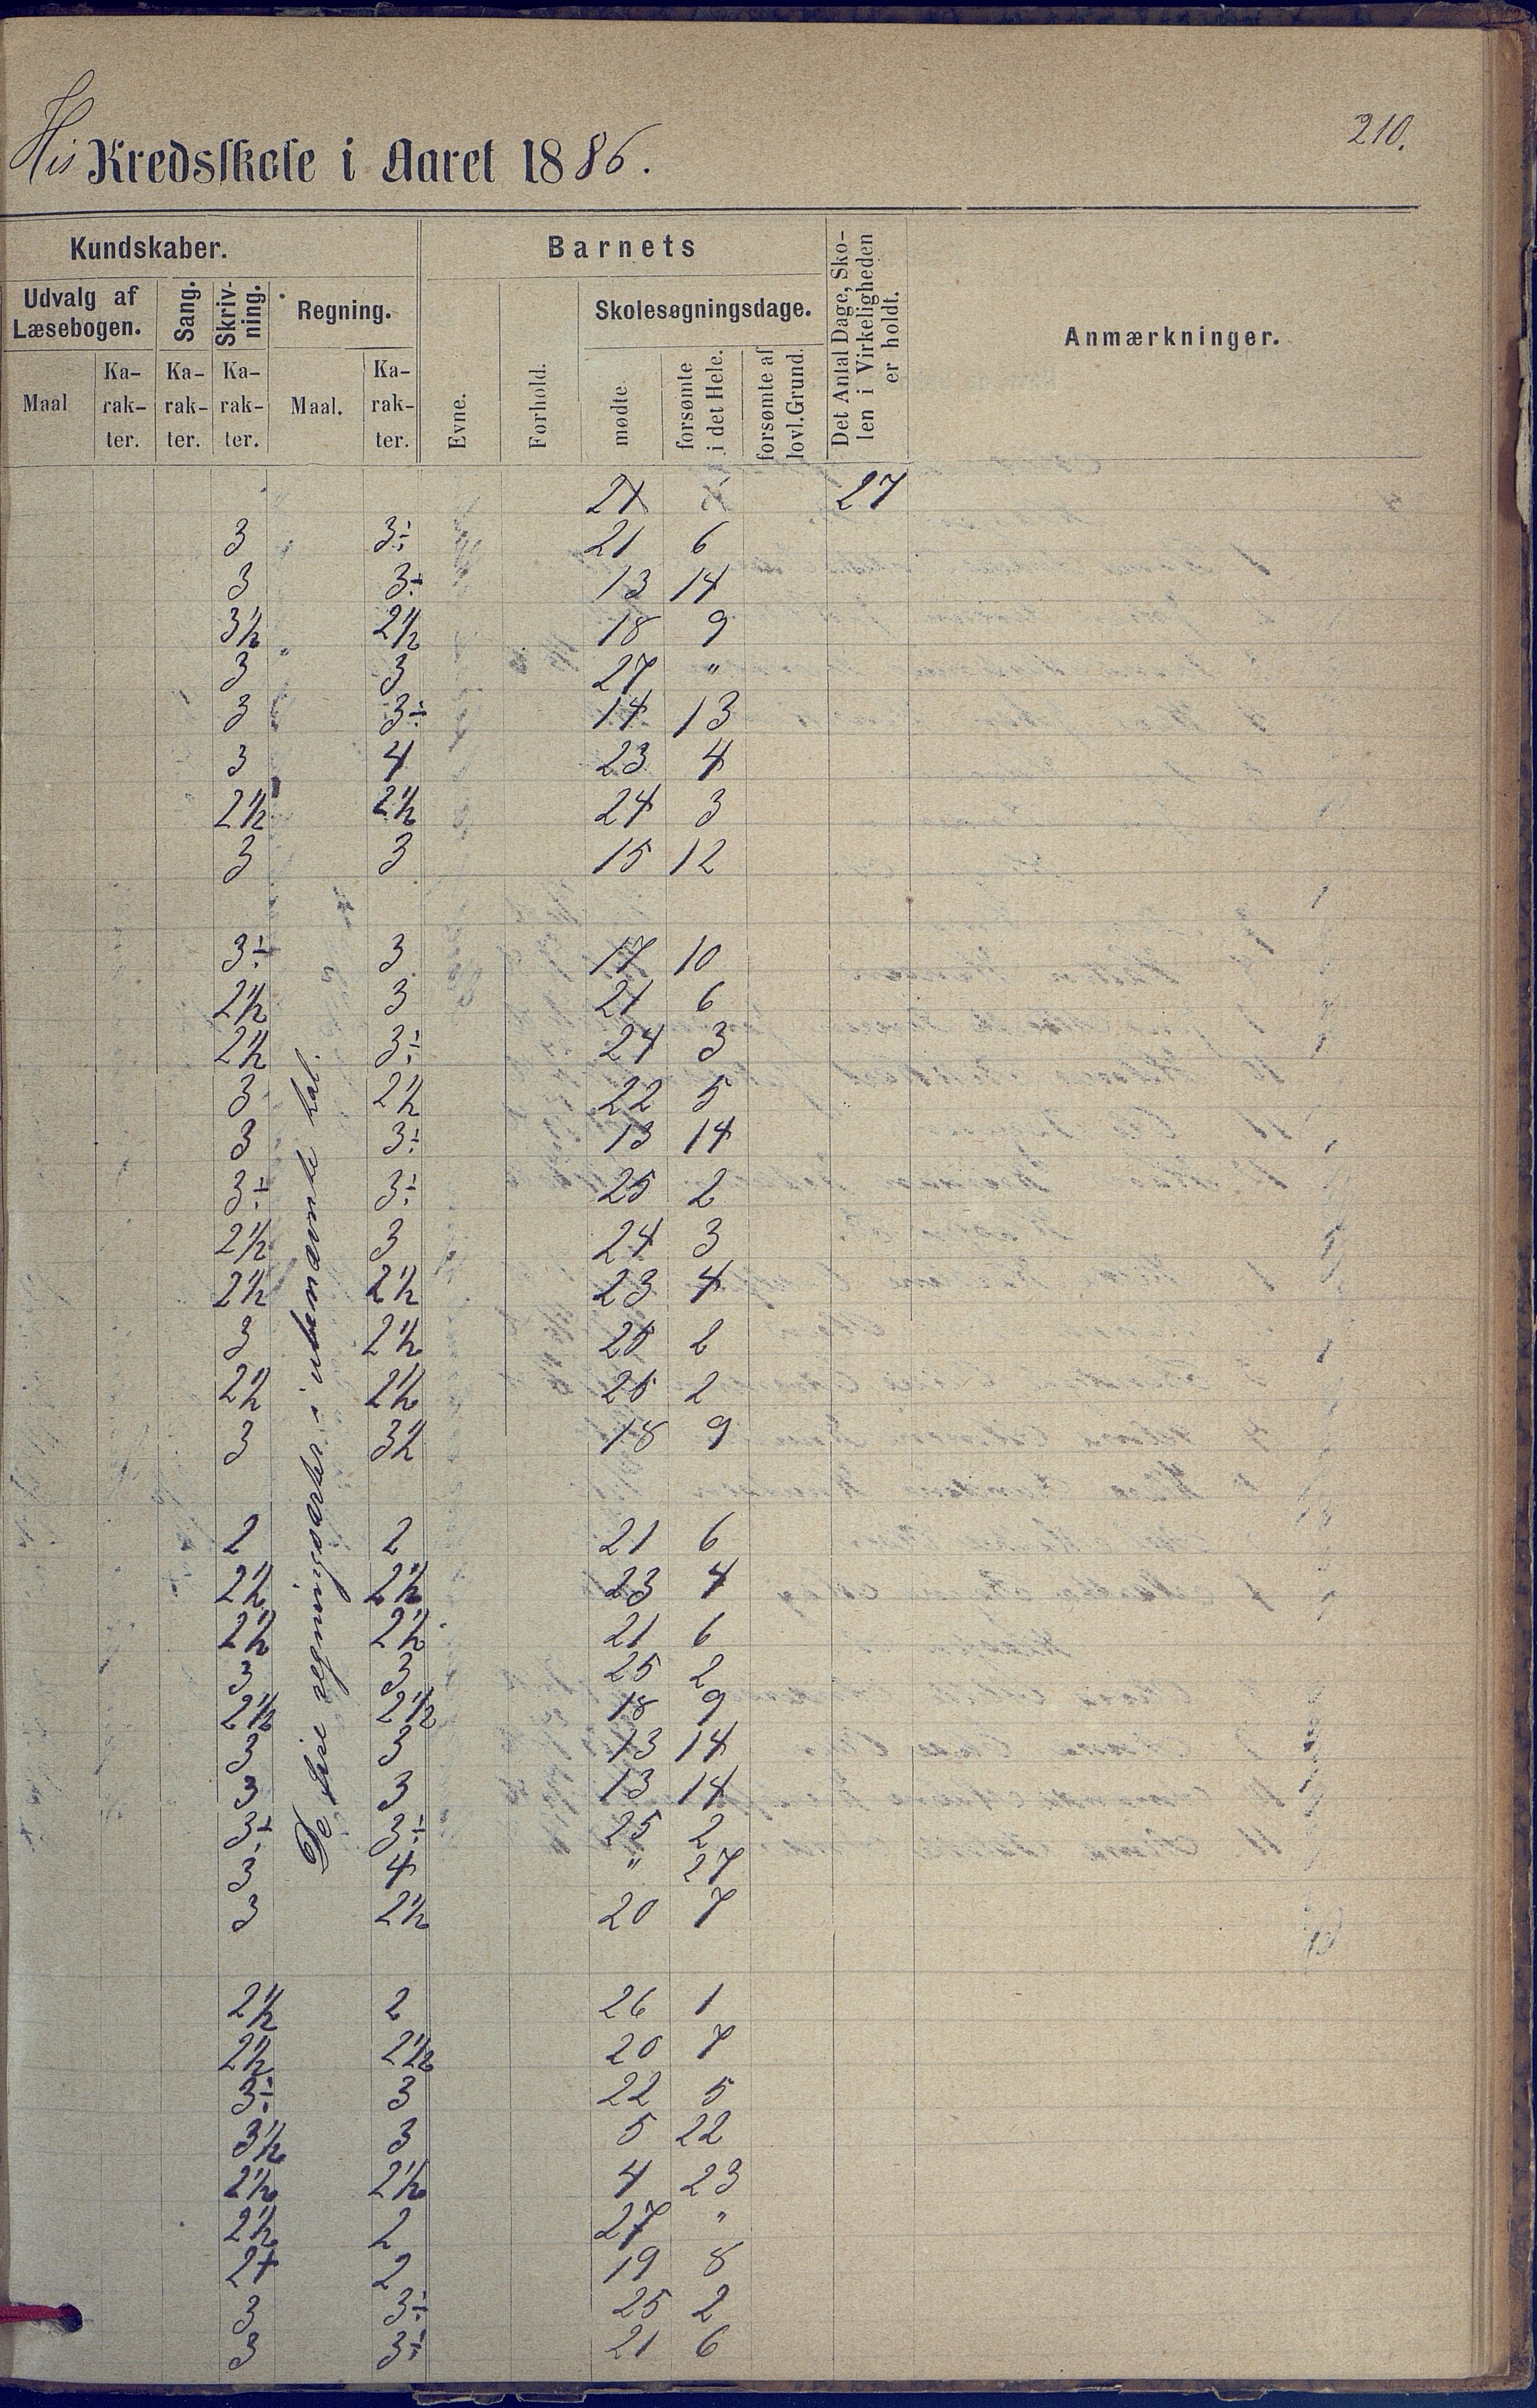 210.
His Kredsskole i Aaret 1886.
Kundskaber. Barnets Det Antal Dage, Sko-
len i Virkeligheden
er holdt. Anmærkninger.
Udvalg af
Læsebogen. Sang. Skriv-
ning. Regning. Skolesøgningsdage.
Maal Ka-
rak-
ter. Ka-
rak-
ter. Ka-
rak-
ter. Maal. Ka-
rak-
ter. Evne. Forhold. mødte forsømte
i det Hele. forsømte af
lovl. Grund.
27
3 3÷ 21 6
3 3÷ 13 14
3½ 2½ 18 9
3 3 27 "
3 3÷ 14 13
3 4 23 4
2½ 2½ 24 3
3 3 15 12
3÷ 3 17 10
2½ 3 21 6
2½ 3÷ 24 3
3 2½ 22 5
3 3÷ 13 14
3÷ 3÷ 25 2
2½ 3 24 3
2½ 2½ 23 4
3 2½ 25 2
2½ 2½ 25 2
3 3½ 18 9
De fire regningsarter i ubenævnte tal.
2 2 21 6
2½ 2½ 23 4
2½ 2½ 21 6
3 3 25 2
2½ 2½ 18 9
3 3 13 14
3 3 13 14
3÷ 3÷ 25 2
3 4 " 27
3 2½ 20 7
2½ 2 26 1
2½ 2½ 20 7
3÷ 3 22 5
3½ 3 5 22
2½ 2½ 4 23
2½ 2 27 "
2+ 2 19 8
3 3÷ 25 2
3 3÷ 21 6